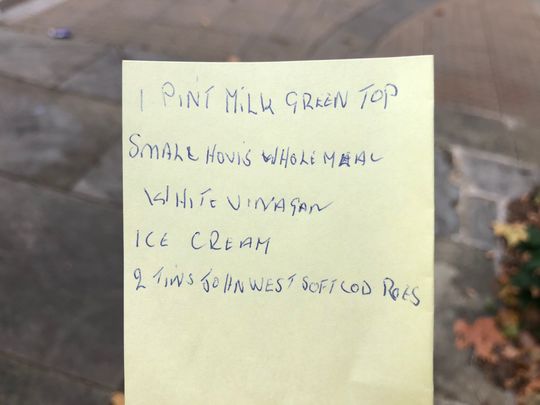 1 PINT MILK GREEN TOP
SMALL HOVIS WHOLEMEAL
WHITE VINAGAR
ICE CREAM
2 TINS JOHN WEST SOFT COD ROES